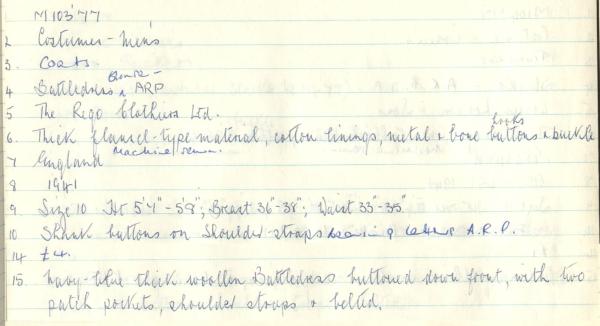 M103'77
2 Costumes - Men's
3. Coats
4 Battledress Blouse - ARP
5 The Rego Clothiers Ltd.
6. Thick flannel-type material, cotton linings, metal & bone buttons hooks & buckle
7 England machine sewn.
8 1941
9 Size 10 Ht 5'7"-5'8"; Breast 36"-38"; Waist 33"-35"
10 Shank buttons on shoulder straps bearing letters A.R.P.
14 £4.
15. Navy-blue thick woollen Battledress buttoned down front, with two
patch pockets, shoulder straps & belted.